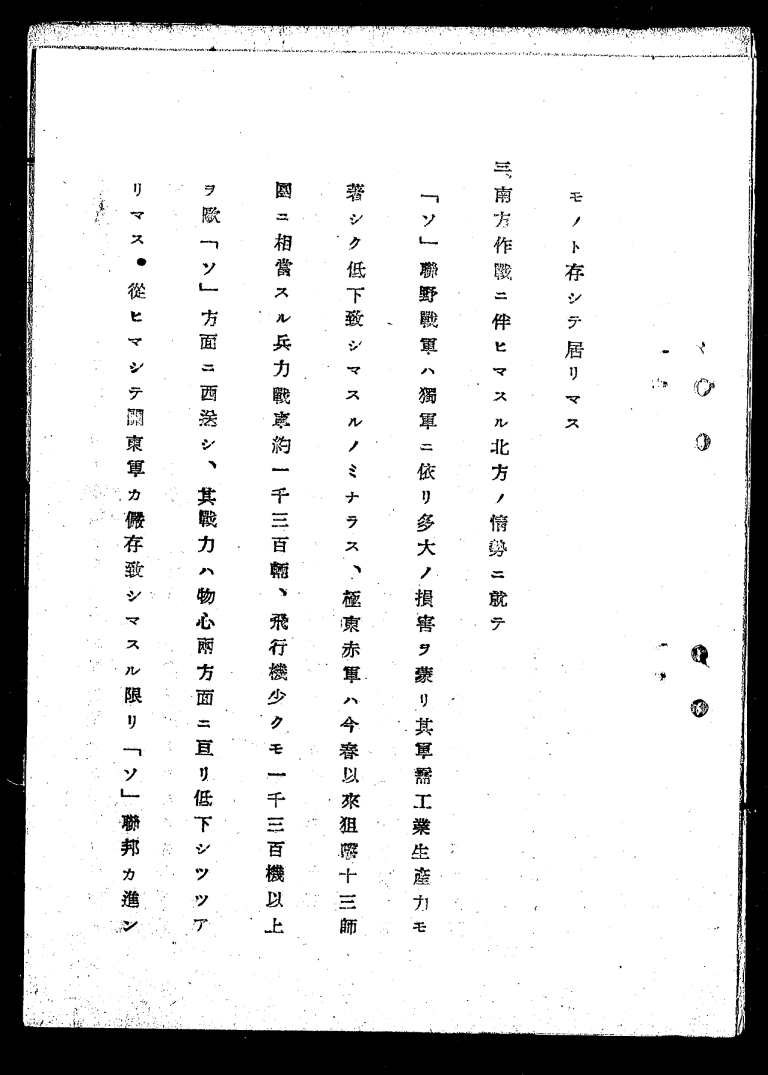 モノト存シテ居リマス
三、南方作戰ニ伴ヒマスル北方ノ情勢ニ就テ
「ソ」聯野戰軍ハ獨軍ニ依リ多大ノ損害ヲ蒙リ其軍需工業生産力モ
著シク低下致シマスルノミナラス、極東赤軍ハ今春以來狙擊十三師
團ニ相當スル兵力戰車約一千三百輛、飛行機少クモ一千三百機以上
ヲ歐「ソ」方面ニ西送シ、其戰力ハ物心兩方面ニ亘リ低下シツツア
リマス。從ヒマシテ關東軍カ儼存致シマスル限リ「ソ」聯邦カ進ン